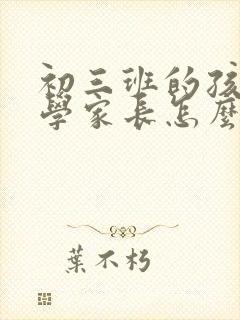 初三班的孩
學家長怎麼
葉不朽